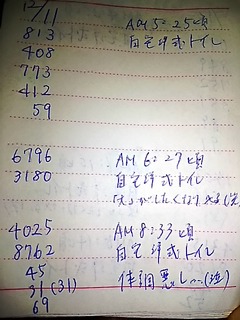 12/11
813 AM 5:25頃
408 自宅洋式トイレ
773
412
59
6796 AM 6:27頃
3180 自宅洋式トイレ
4025 AM 8:33頃
8762 自宅洋式トイレ
45
31(31) 体調悪し…(泣)
69